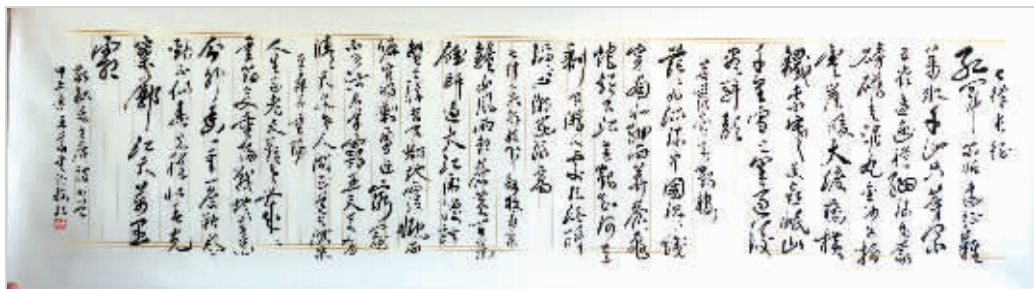 七律长征
红军不怕远征难
万水千山只等闲
五岭逶迤腾细浪乌蒙
磅礴走泥丸金沙水拍
云崖暖大渡桥横
铁索寒更喜岷山
千里雪三军过后
尽开颜
菩萨蛮黄鹤楼
茫茫九派流中国沉沉一线
穿南北烟雨莽苍苍龟
蛇锁大江黄鹤知何去
剩有游人处把酒酹
滔滔心潮逐浪高
钟山风雨起苍黄百万
雄师过大江虎踞龙
盘今胜昔天翻地覆慨而
慷宜将剩勇追穷寇
不可沽名学霸王天若有
情天亦老人间正道是沧桑
采桑子重阳
人生易老天难老岁岁
重阳今又重阳战地黄花
分外香一年一度秋风
劲不似春光胜似春光
寥廓江天万里
霜
敬录毛主席诗词四首